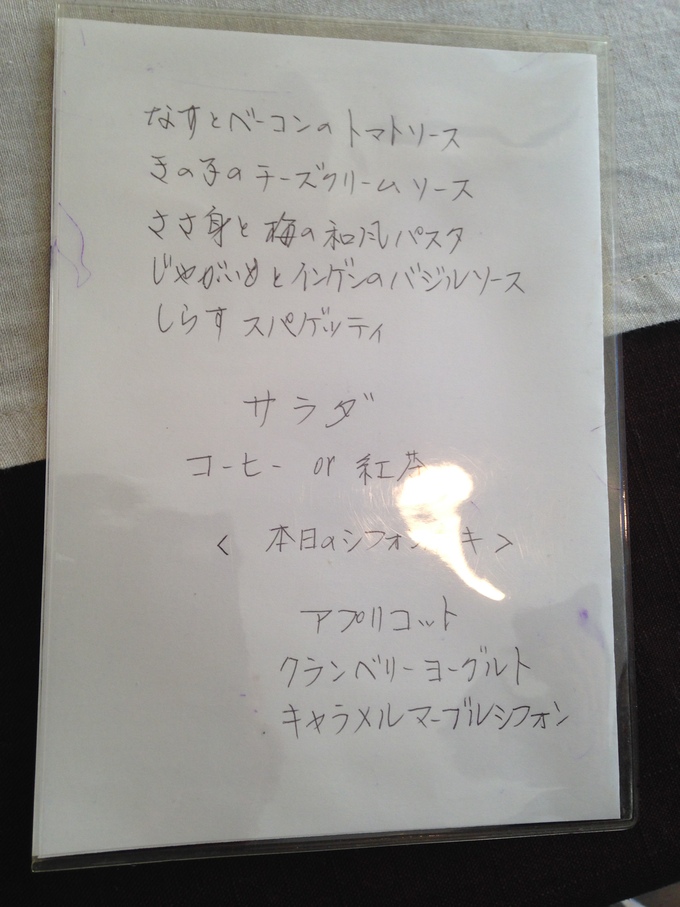 なすとベーコンのトマトソース
きの子のチーズクリームソース
ささ身と梅の和風パスタ
じゃがいもとインゲンのバジルソース
しらすスパゲッティ
サラダ
コーヒー or 紅茶
< 本日のシフォン キ >
アプリコット
クランベリーヨーグルト
キャラメルマーブルシフォン